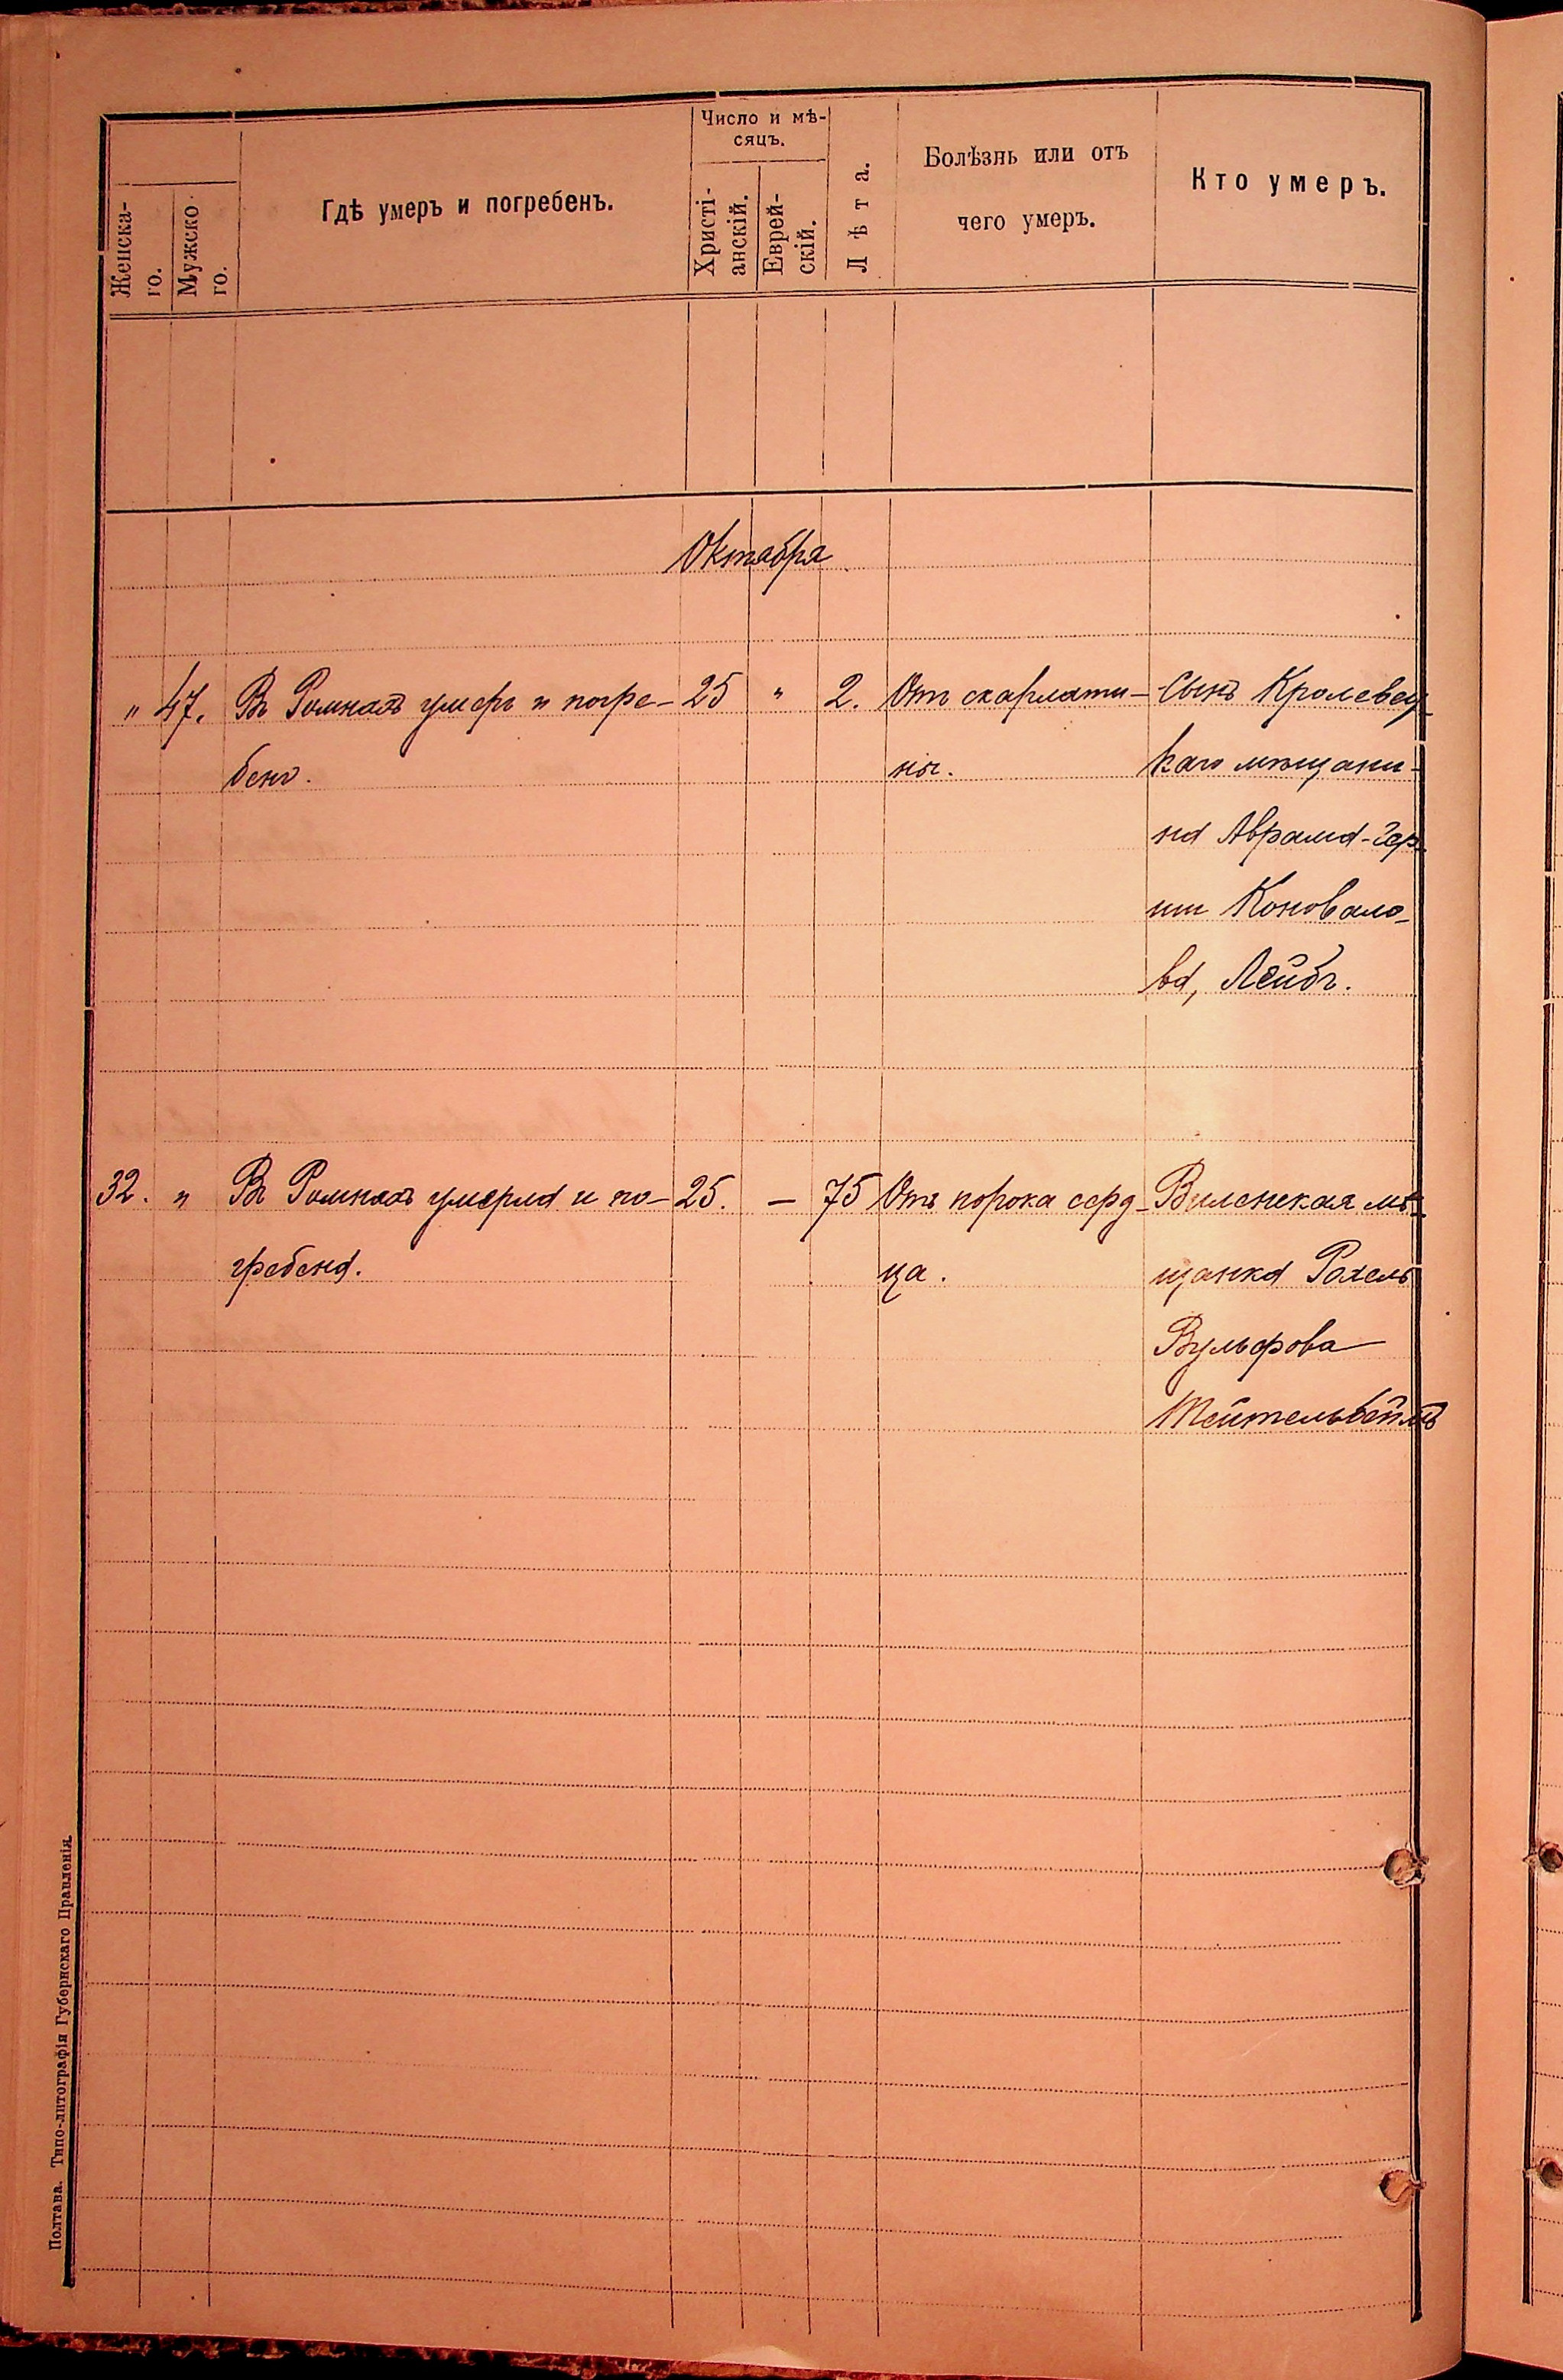 Женска-
го.
Мужско-
го.
Гдѣ умеръ и погребенъ.
Число и мѣ-
сяцъ.
Христі-
анскій.
Еврей-
скій.
Лѣта.
Болѣзнь или отъ
чего умеръ.
Кто умеръ.
Октября
" 47. Въ Ромнахъ умеръ и погре- 25 " 2. Отъ скарлати- Сынъ Кролевец-
бенъ. ны. каго мѣщани-
на Абрама-Гер-
ши Коновало-
ва, Лейбъ.
32. " Въ Ромнахъ умерла и по- 25. - 75 Отъ порока серд- Виленская мѣ-
гребена. ца. щанка Рохель
Вульфова
Тейтельбеймъ
Полтава. Типо-литографія Губернскаго Правленія.